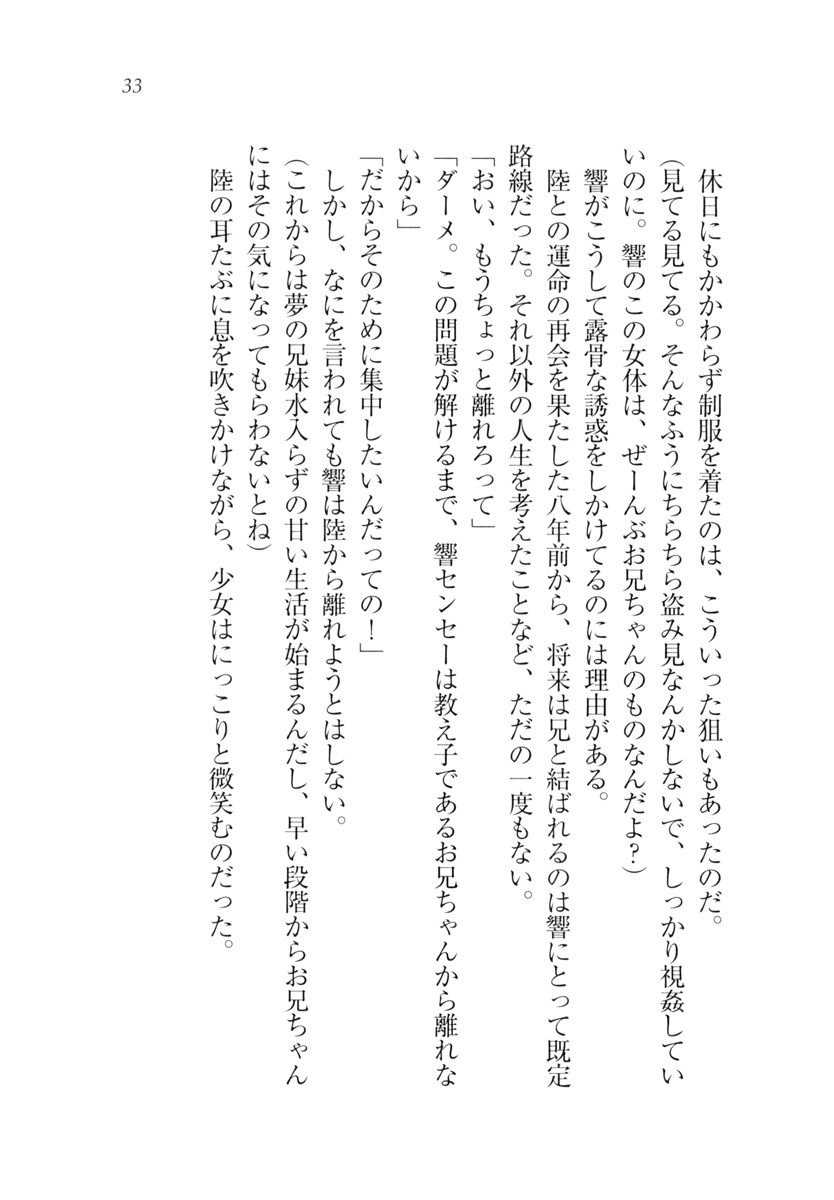 33
休日にもかかわらず制服を着たのは、こういった狙いもあったのだ。
（見てる見てる。そんなふうにちらちら盗み見なんかしないで、しっかり視姦してい
いのに。響のこの女体は、ぜーんぶお兄ちゃんのものなんだよ？）
響がこうして露骨な誘惑をしかけてるのには理由がある。
陸との運命の再会を果たした八年前から、将来は兄と結ばれるのは響にとって既定
路線だった。それ以外の人生を考えたことなど、ただの一度もない。
「おい、もうちょっと離れろって」
「ダーメ。この問題が解けるまで、響センセーは教え子であるお兄ちゃんから離れな
いから」
「だからそのために集中したいんだっての！」
しかし、なにを言われても響は陸から離れようとはしない。
（これからは夢の兄妹水入らずの甘い生活が始まるんだし、早い段階からお兄ちゃん
にはその気になってもらわないとね）
陸の耳たぶに息を吹きかけながら、少女はにっこりと微笑むのだった。